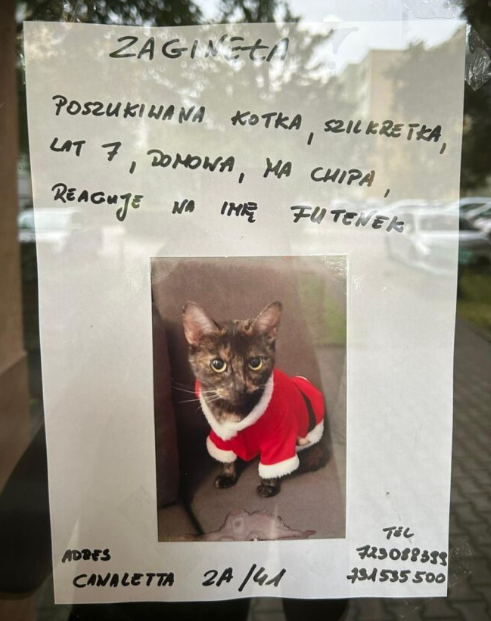 ZAGINĘŁA
POSZUKIWANA KOTKA, SZILKRETKA,
LAT 7, DOMOWA, MA CHIPA,
REAGUJE NA IMIĘ FUTENEK
ADRES
CANALETTA 2A/41
TEL
723088399
731535500